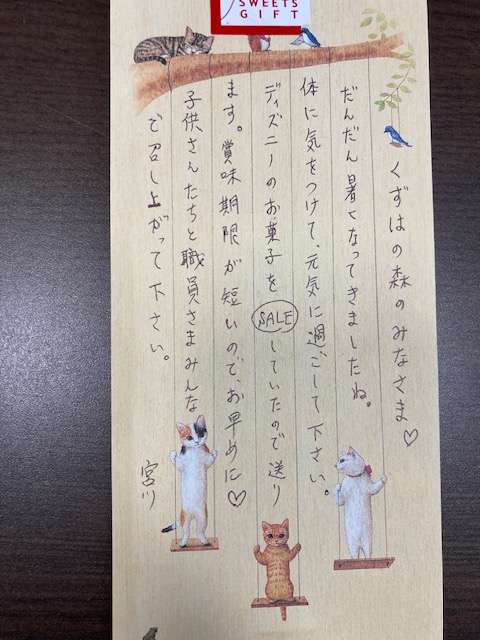 SWEETS
GIFT
くずはの森のみなさま♡
だんだん暑くなってきましたね。
体に気をつけて、元気に過ごして下さい。
ディズニーのお菓子をSALEしていたので送り
ます。賞味期限が短いので、お早めに♡
子供さんたちと職員さまみんな
で召し上がって下さい。
宮川